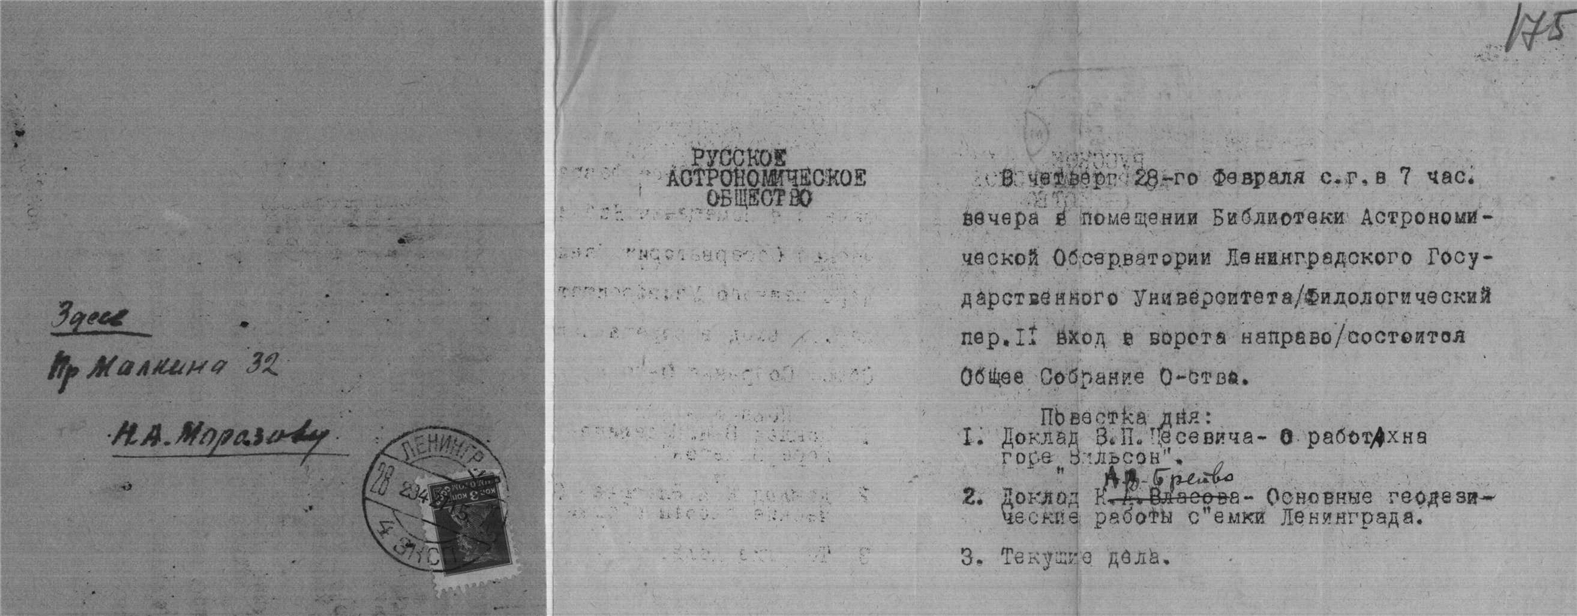 175
Здесь
Пр Малкина 32
Н.А. Морозову
ЛЕНИНГР
28
4 ЭКСП
РУССКОЕ
АСТРОНОМИЧЕСКОЕ
ОБЩЕСТВО
В четверг 28-го Февраля с.г. в 7 час.
вечера в помещении Библиотеки Астрономи-
ческой Обсерватории Ленинградского Госу-
дарственного Университета/Филологический
пер.II вход в ворота направо/состоится
Общее Собрание О-ства.
Повестка дня:
1. Доклад В.П. Цесевича- О работАхна
горе "Вильсон".
2. Доклод К.А. Власова- Основные геодези-
ческие работы с"емки Ленинграда.
3. Текущие дела.